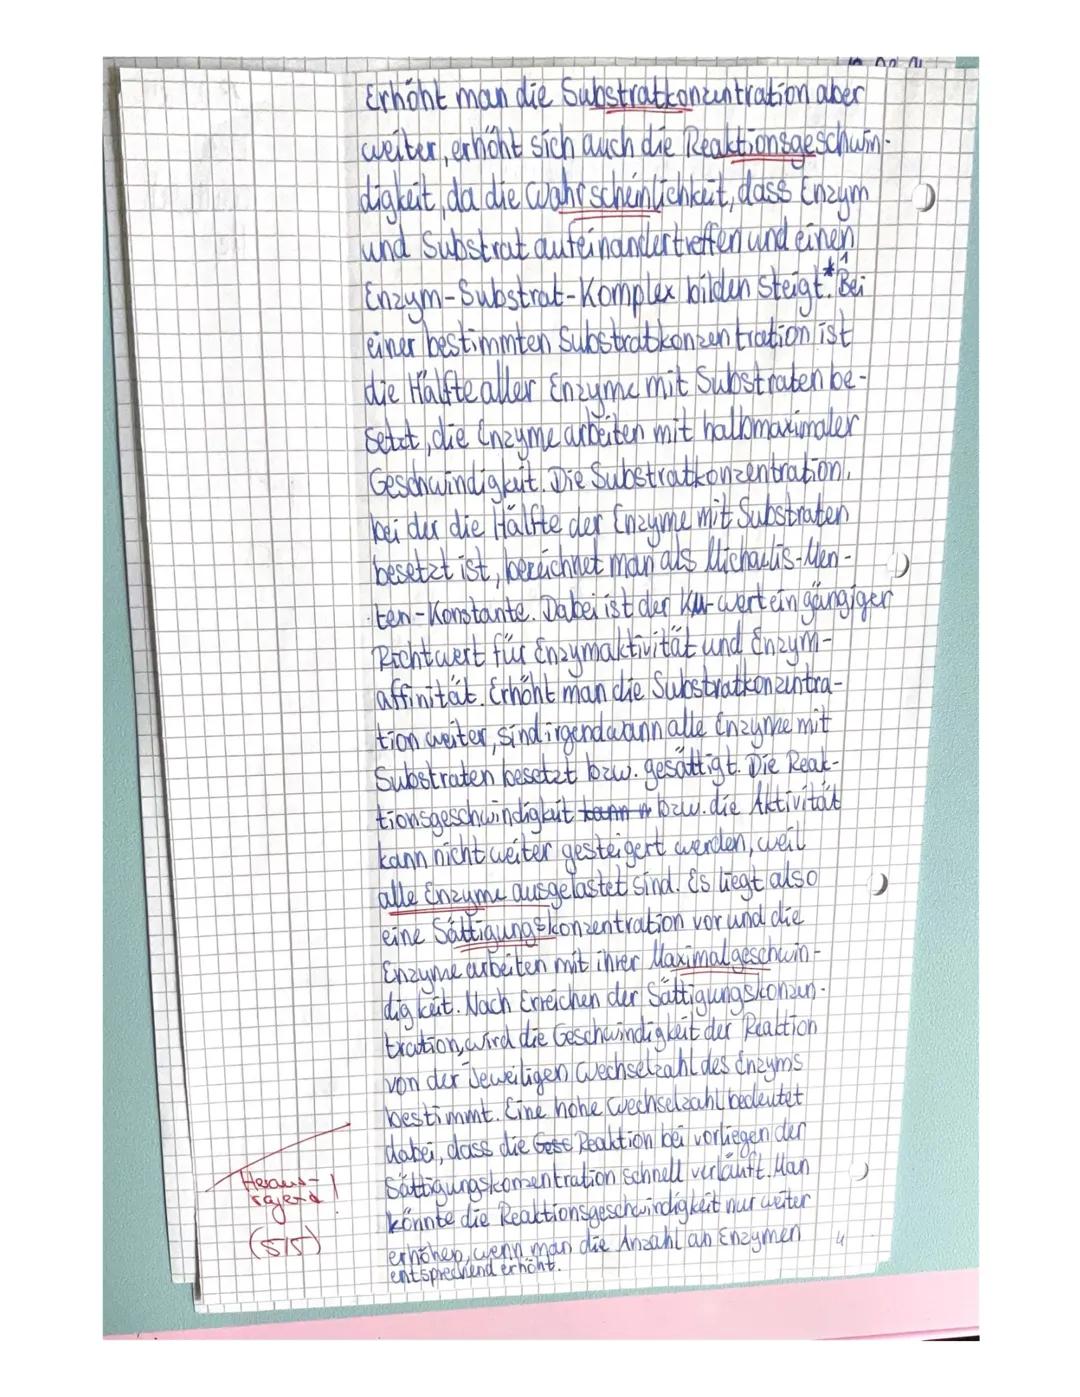 Erhöht man die Substratkonzentration aber
weiter, erhöht sich auch die Reaktionsgeschwin-
digkeit, da die Wahrscheinlichkeit, dass Enzym
und Substrat aufeinandertreffen und einen
Enzym-Substrat-Komplex bilden steigt.*¹ Bei
einer bestimmten Substratkonzentration ist
die Hälfte aller Enzyme mit Substraten be-
setzt, die Enzyme arbeiten mit halbmaximaler
Geschwindigkeit. Die Substratkonzentration,
bei der die Hälfte der Enzyme mit Substraten
besetzt ist, bezeichnet man als Michaelis-Men-
ten-Konstante. Dabei ist der KM-wert ein gängiger
Richtwert für Enzymaktivität und Enzym-
affinität. Erhöht man die Substratkonzentra-
tion weiter, sind irgendwann alle Enzyme mit
Substraten besetzt bzw. gesättigt. Die Reak-
tionsgeschwindigkeit kann bzw. die Aktivität
kann nicht weiter gesteigert werden, weil
alle Enzyme ausgelastet sind. Es liegt also
eine Sättigungskonzentration vor und die
Enzyme arbeiten mit ihrer Maximalgeschwin-
digkeit. Nach Erreichen der Sättigungskonzen-
tration, wird die Geschwindigkeit der Reaktion
von der jeweiligen Wechselzahl des Enzyms
bestimmt. Eine hohe Wechselzahl bedeutet
dabei, dass die Gesc Reaktion bei vorliegen der
Sättigungskonzentration schnell verläuft. Man
könnte die Reaktionsgeschwindigkeit nur weiter
erhöhen, wenn man die Anzahl an Enzymen
entsprechend erhöht.
Heraus-
ragend!
(5/5)
4